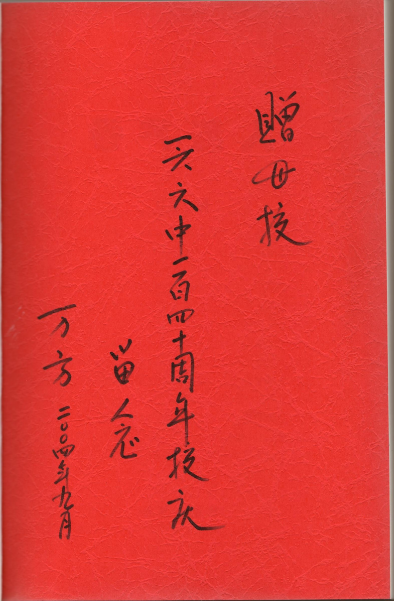 贈母校
一六六中一百四十周年校庆
留念
万方 二〇〇四年九月